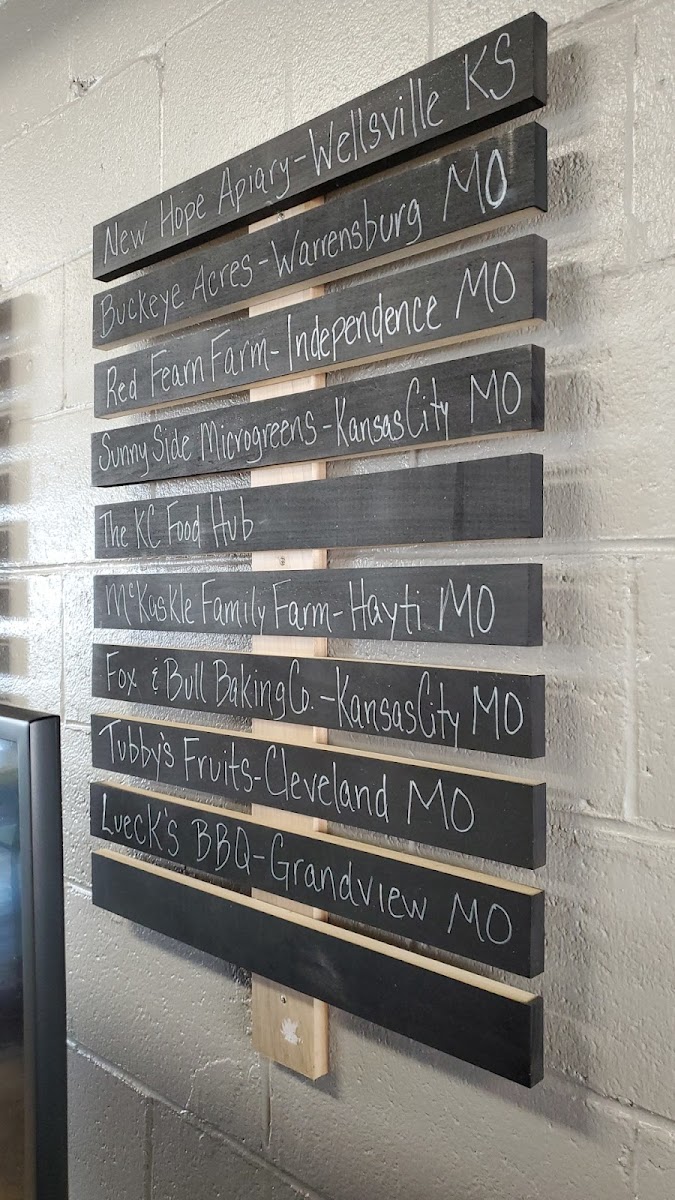 New Hope Apiary-Wellsville KS
Buckeye Acres-Warrensburg MO
Red Fearn Farm-Independence MO
Sunny Side Microgreens-Kansas City MO
The KC Food Hub
McKaskle Family Farm-Hayti MO
Fox & Bull Baking Co.-Kansas City MO
Tubby's Fruits-Cleveland MO
Lueck's BBQ-Grandview MO